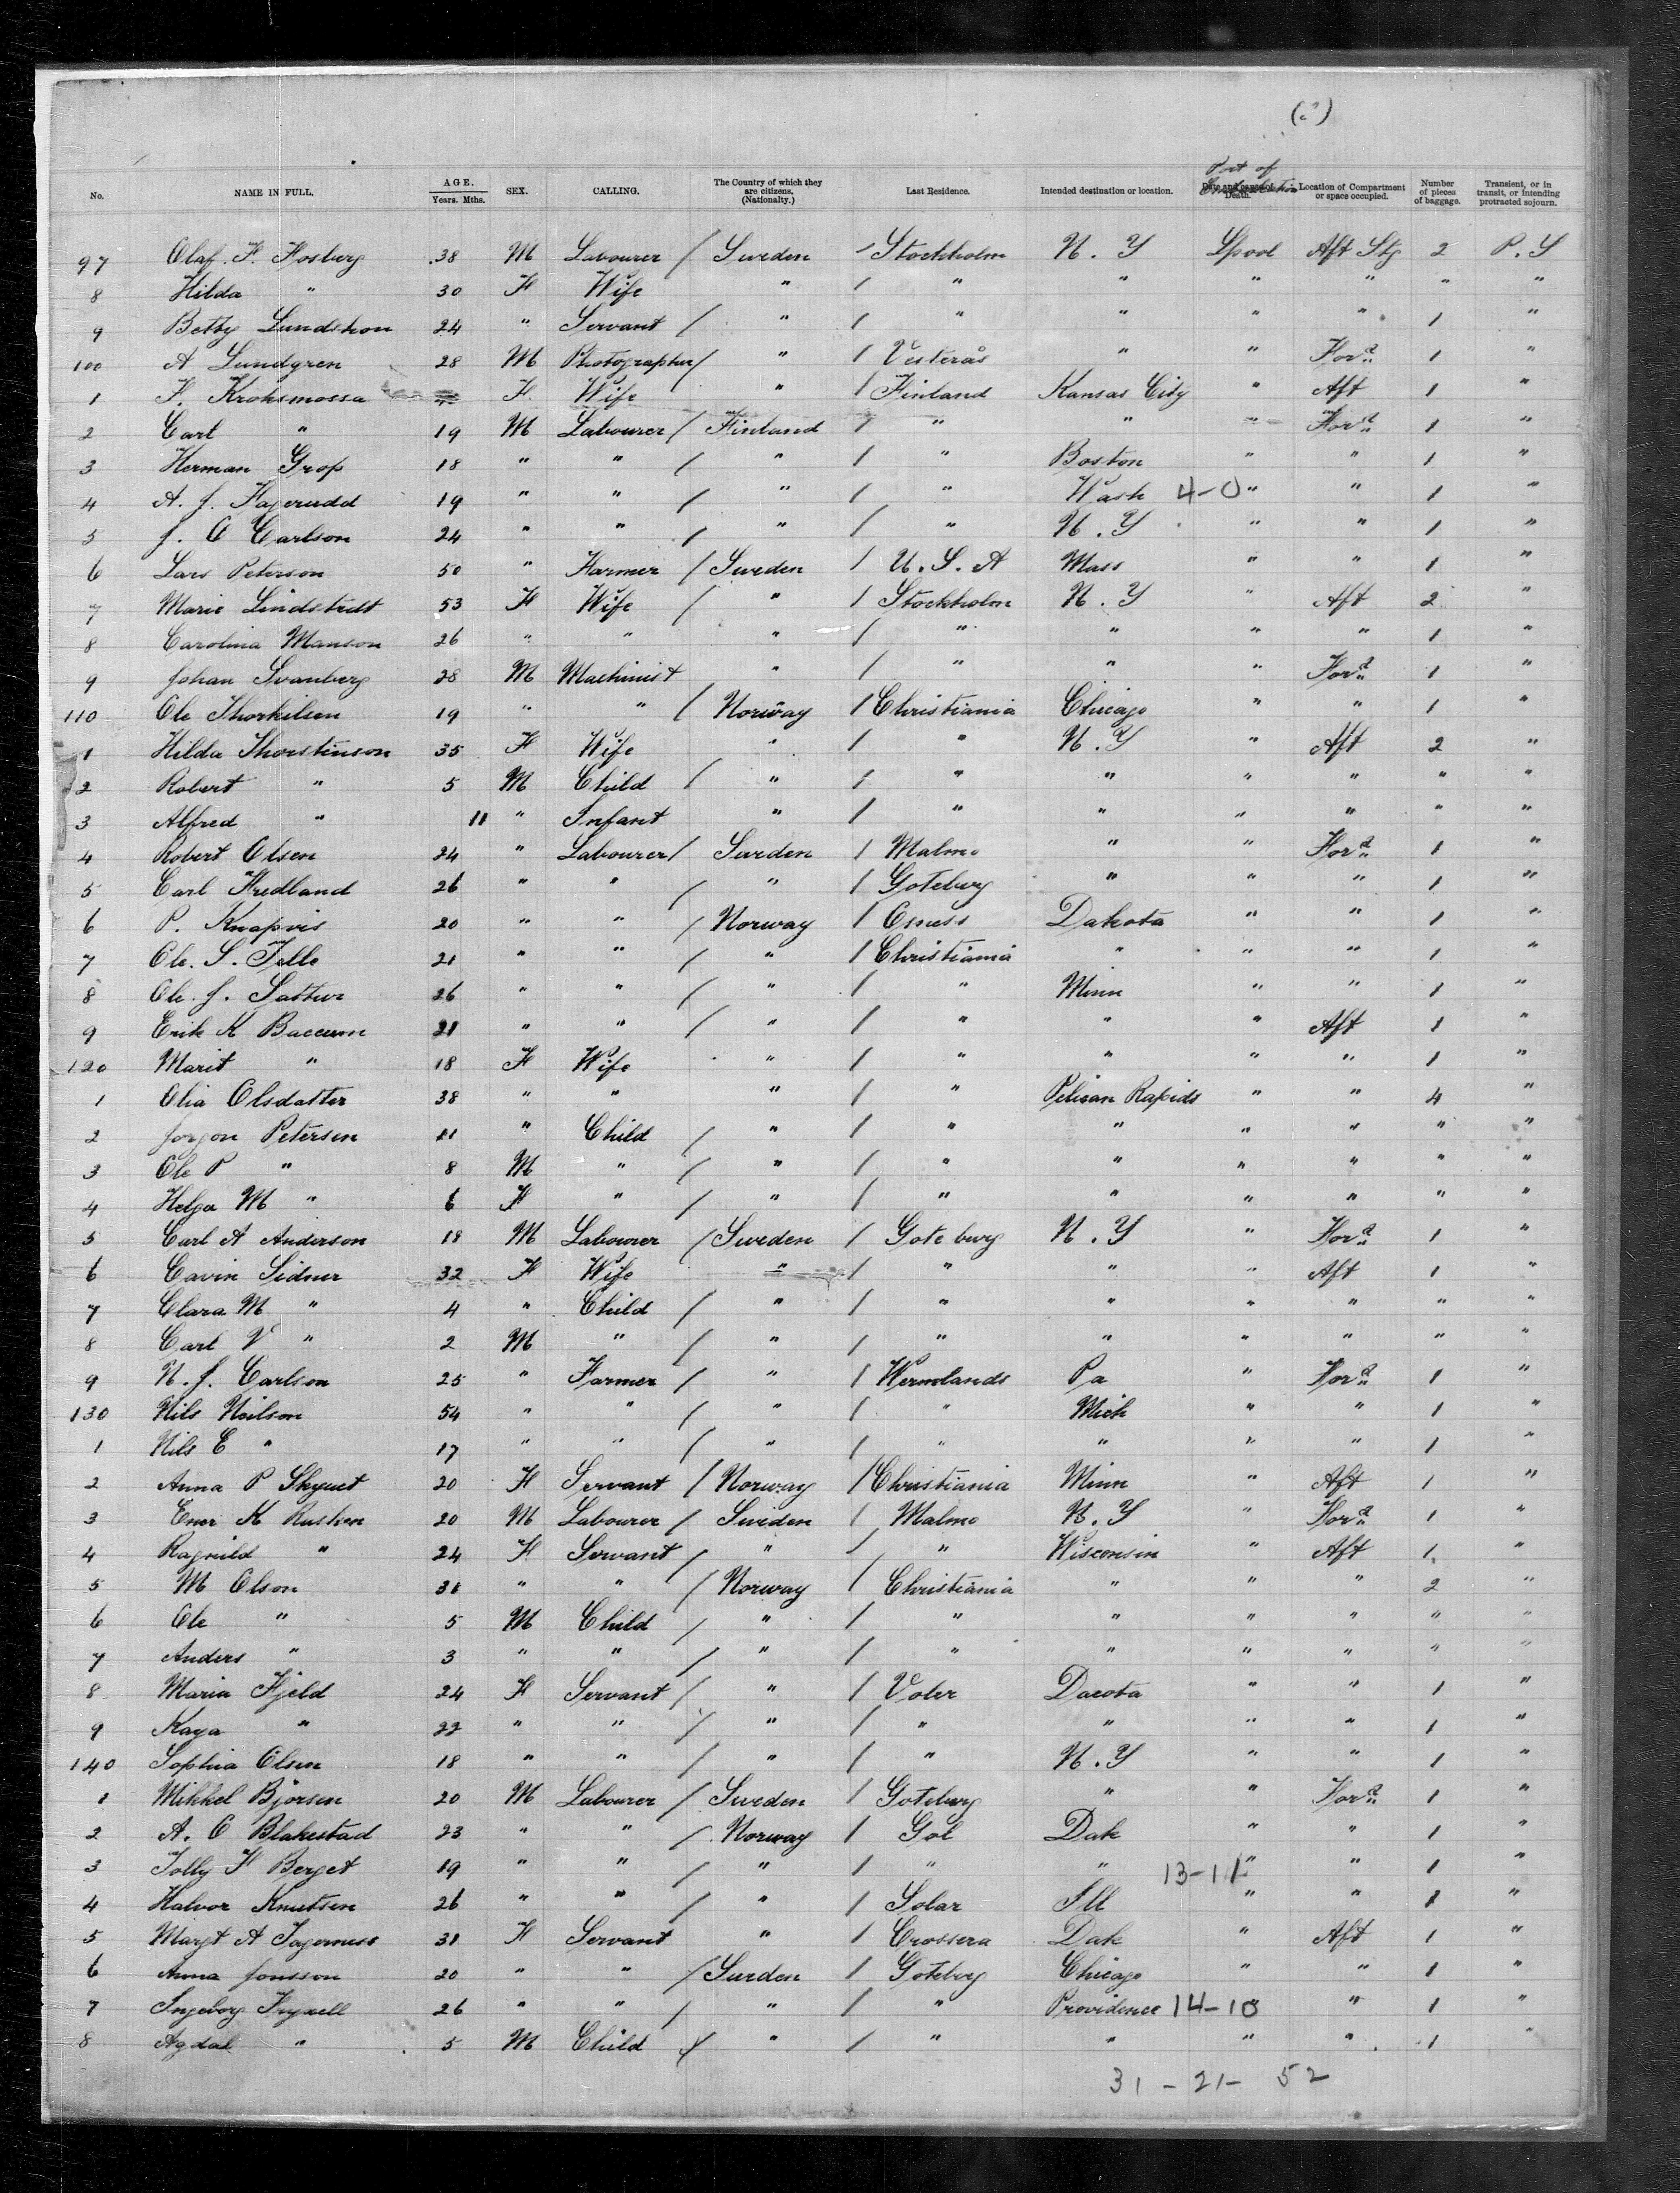 (2)
No. NAME IN FULL. AGE. Years. Mths. SEX. CALLING. The Country of which they are citizens. (Nationalty.) Last Residence. Intended destination or location. Port of Date and cause of Death. Location of Compartment or space occupied. Number of pieces of baggage. Transient, or in transit, or intending protracted sojourn.
97 Olaf. F. Fosberg 38 M Labourer / Sweden / Stockholm N. Y Lpool Aft Stg 2 P. S
8 Hilda " 30 F Wife " / " " " " " "
9 Betty Lundshon 24 " Servant / " / " " " " 1 "
100 A Lundgren 28 M Photographer / " / Vesterås " " For^d 1 "
1 F. Krohsmossa F Wife " / Finland Kansas City " Aft 1 "
2 Carl " 19 M Labourer / Finland / " " " For^d 1 "
3 Herman Grop 18 " " / " / " Boston " " 1 "
4 A. J. Fagerudd 19 " " / " / " Wash 4-0 " " 1 "
5 J. O Carlson 24 " " / " / " N. Y " " 1 "
6 Lars Peterson 50 " Farmer / Sweden / U. S. A Mass " " 1 "
7 Marie Lindstedt 53 F Wife / " / Stockholm N. Y " Aft 2 "
8 Carolina Manson 26 " " " / " " " " 1 "
9 Johan Svanberg 28 M Machinist " / " " " For^d 1 "
110 Ole Thorkilsen 19 " " / Norway / Christiania Chicago " " 1 "
1 Hilda Thorstinson 35 F Wife " / " N. Y " Aft 2 "
2 Robert " 5 M Child / " / " " " " " "
3 Alfred " 11 " Infant " / " " " " " "
4 Robert Olsen 24 " Labourer / Sweden / Malmo " " For^d 1 "
5 Carl Fredland 26 " " / " / Goteburg " " " 1 "
6 P. Knapvis 20 " " / Norway / Osness Dakota " " 1 "
7 Ole. S. Telle 21 " " / " / Christiania " " " 1 "
8 Ole. J. Sattur 26 " " / " / " Minn " " 1 "
9 Erik K Baccuon 21 " " / " / " " " Aft 1 "
120 Marit " 18 F Wife " / " " " " 1 "
1 Olia Olsdatter 38 " " " / " Pelican Rapids " " 4 "
2 Jorgon Petersen 11 " Child / " / " " " " " "
3 Ole P " 8 M " / " / " " " " " "
4 Helga M " 6 F " / " / " " " " " "
5 Carl A Anderson 18 M Labourer / Sweden / Goteburg N. Y " For^d 1 "
6 Cavin Sidner 32 F Wife " / " " " Aft 1 "
7 Clara M " 4 " Child / " / " " " " " "
8 Carl V " 2 M " / " / " " " " " "
9 N. J. Carlson 25 " Farmer / " / Wermlands Pa " For^d 1 "
130 Nils Neilson 54 " " / " / " Mich " " 1 "
1 Nils E " 17 " " / " / " " " " 1 "
2 Anna P Skyuet 20 F Servant / Norway / Christiania Minn " Aft 1 "
3 Ener K Rushen 20 M Labourer / Sweden / Malmo N. Y " For^d 1 "
4 Ragnild " 24 F Servant / " / " Wisconsin " Aft 1 "
5 M Olson 31 " " / Norway / Christiania " " " 2 "
6 Ole " 5 M Child / " / " " " " " "
7 Anders " 3 " " / " / " " " " " "
8 Maria Fjeld 24 F Servant / " / Voler Dacota " " 1 "
9 Kaya " 22 " " / " / " " " " 1 "
140 Sophia Olsen 18 " " / " / " N. Y " " 1 "
1 Mikkel Bjorsen 20 M Labourer / Sweden / Goteburg " " For^d 1 "
2 A. O Blakestad 23 " " / Norway / Gol Dak " " 1 "
3 Tolly F Berget 19 " " / " / " " 13-11 " " 1 "
4 Halvor Knutsen 26 " " / " / Solar Ill " " 1 "
5 Margt A Fagerness 31 F Servant " / Crossera Dak " Aft 1 "
6 Anna Jonsson 20 " " / Sweden / Goteborg Chicago " " 1 "
7 Ingeborg Fryxell 26 " " / " / " Providence 14-10 " 1 "
8 Agdal " 5 M Child / " / " " " " 1 "
31 - 21 - 52